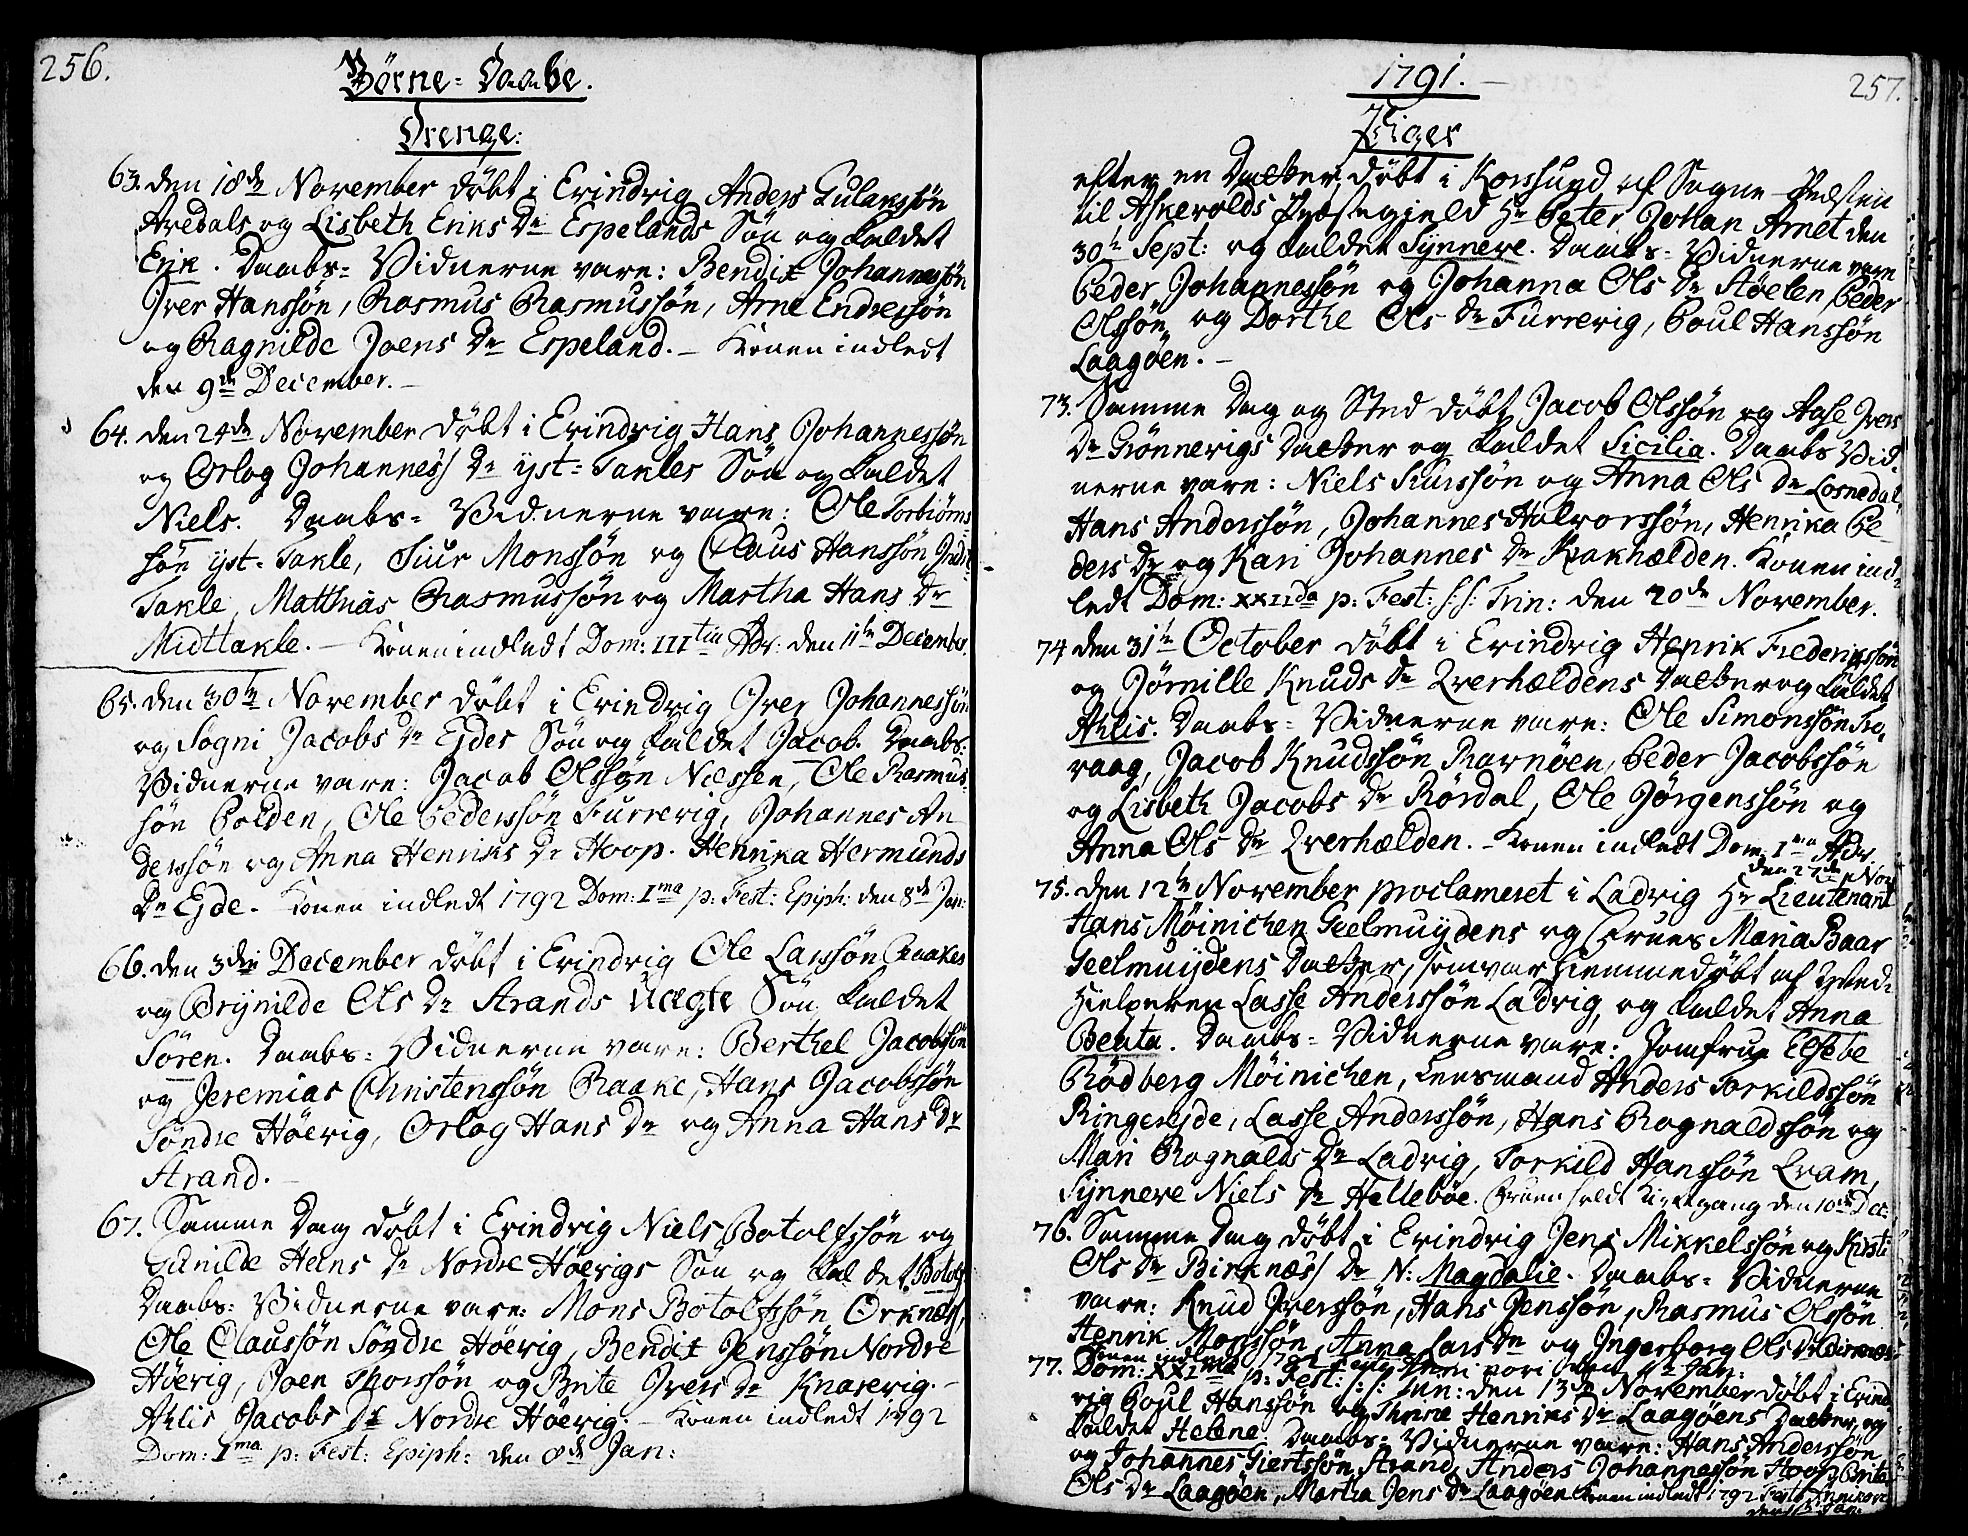 256.
Börne-Daabe.
Drenge:
63. den 18de November döbt i Evindvig Anders Gulakssön
Aredals og Lisbeth Eriks Dr Espelands Sön og kaldet
Erik. Daabs-Vidnerne vare: Bendix Johannessön
Iver Hanssön, Rasmus Rasmussön, Arne Endressön
og Ragnilde Joens Dr Espeland. – Konen indledt
den 9de December. –
64. den 24de November döbt i Evindvig Hans Johannessön
og Orlog Johanness Dr yst-Takles Sön og kaldet
Niels. Daabs-Vidnerne vare: Ole Torbiörns
sön yst-Takle, Siur Monssön og Claus Hanssön
Takle, Matthias Rasmussön og Martha Hans Dr
Midttakle. – Konen indledt Dom: IIItia Adv: den 11te Decembr.
65. den 30te November döbt i Evindvig Iver Johannessön
og Sogni Jacobs Dr Ejdes Sön og kaldet Jacob. Daabs-
Vidnerne vare: Jacob Olssön Næssen, Ole Rasmus-
sön Polden, Ole Pederssön Furrevig, Johannes An
derssön og Anna Henriks Dr Hoop. Henrika Hermunds
Dr Ejde. Konen indledt 1792 Dom: Ima p: Fest: Epiph: den 8de Jan:
66. den 3die December döbt i Evindvig Ole Larssön Raakes
og Brynilde Ols Dr Strands Uægte Sön kaldet
Sören. Daabs-Vidnerne vare: Berthel Jacobssön
og Jeremias Christenssön Raake, Hans Jacobssön
Söndre Höevig, Orlog Hans Dr og Anna Hans Dr
Strand. –
67. Samme Dag döbt i Evindvig Niels Botolfssön og
Gunilde Heins Dr Nordre Höevigs Sön og kaldet Botolf
Daabs-Vidnerne vare: Mons Botolfssön Orknæs,
Ole Claussön Söndre Höevig, Bendix Jenssön Nordre
Höevig, Joen Thorssön og Brite Ivers Dr Knarvig. –
Ahlis Jacobs Dr Nordre Höevig. – Konen indledt 1792
Dom: Ima p: Fest: Epiph: den 8de Jan:
1791. –
257.
Piger
efter en Datter döbt i Korssund af Sogne-Præsten
til Askevolds Præstegield Hr Peter Johan Arnet den
30te Sept: og kaldet Synneve. Daabs-Vidnerne vare
Peder Johannessön og Johanna Ols Dr Stöelen, Peder
Olssön og Dorthe Ols Dr Furrevig, Poul Hanssön
Laagöen. –
73. Samme Dag og Sted döbt Jacob Olssön og Aase Ivers
Dr Grönnevigs Datter og kaldet Sicilia. Daabs Vid-
nerne vare: Niels Siurssön og Anna Ols Dr Losnedal
Hans Anderssön, Johannes Halvorssön, Henrika Pe-
ders Dr og Kari Johannes Dr Krakhælden. Konen ind-
ledt Dom: XXIIda p: Fest: S:S: Trin: den 20de November.
74 den 31te October döbt i Evindvig Henrik Frederikssön
og Jörnille Knuds Dr Qverhældens Datter og kaldet
Ahlis. Daabs-Vidnerne vare: Ole Simonssön
raag, Jacob Knudssön Ravnöen, Peder Jacobssön
og Lisbeth Jacobs Dr Rördal, Ole Jörgenssön og
Anna Ols Dr Qverhælden. – Konen indledt Dom: Ima Adv.
den 27de Nov
75. den 12te November proclameret i Ladvig Hr Lieutenant
Hans Möinichen Geelmuydens og Frues Maria Baar
Geelmuydens Datter, som var hiemmedöbt af Med-
hielperen Lasse Anderssön Ladvig, og kaldet Anna
Benta. Daabs-Vidnerne vare: Jomfrue Elsebe
Rödberg Möinichen, Lensmand Anders Torkildssön
Ringerejde, Lasse Anderssön, Hans Rognaldssön og
Mari Rognalds Dr Ladvig, Torkild Hanssön Qvam,
Synneve Niels Dr Helleböe. Fruen holdt Kirkegang den 10de Dec:
76. Samme Dag döbt i Evindvig Jens Mikkelssön og Kirsti
Ols Dr Birknæs Dr N: Magdalie. Daabs-Vidnerne
vare: Knud Iverssön, Hans Jenssön, Rasmus Olssön
Henrik Monssön, Anna Lars Dr og Ingerborg Ols Dr Birknæs
77. Dom: XXIma p: Fest: S:S: Trin: den 13de November döbt i Evind
vig Poul Hanssön og Henriks Dr Laagöens Datter, og
kaldet Helene. Daabs-Vidnerne vare: Hans Anderssön
og Johannes Giertssön Strand, Anders Johannessön Hoop, Brita
Ols Dr Laagöen, Martha Jens Dr Laagöen Konen indledt 1792